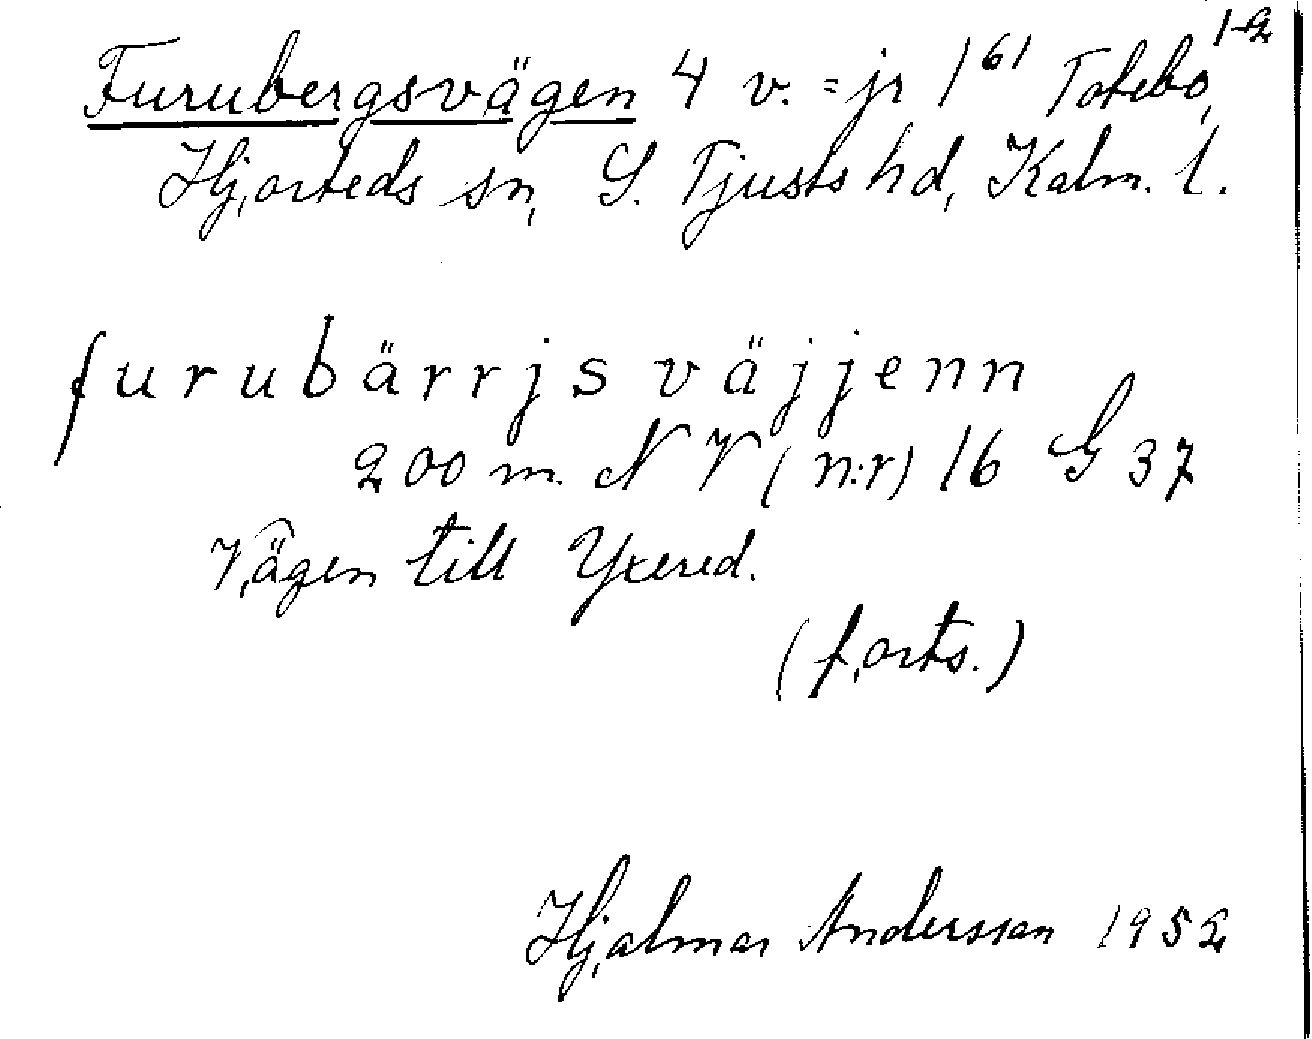 Furubergsvägen 4 v. = jr 1⁶¹ Totebo, 1-2
Hjorteds sn, S. Tjusts hd, Kalm. l.
furubärrjsväjjenn
200 m. N V (n:r) 16 G 37
Vägen till Yxered.
(forts.)
Hjalmar Andersson 1952